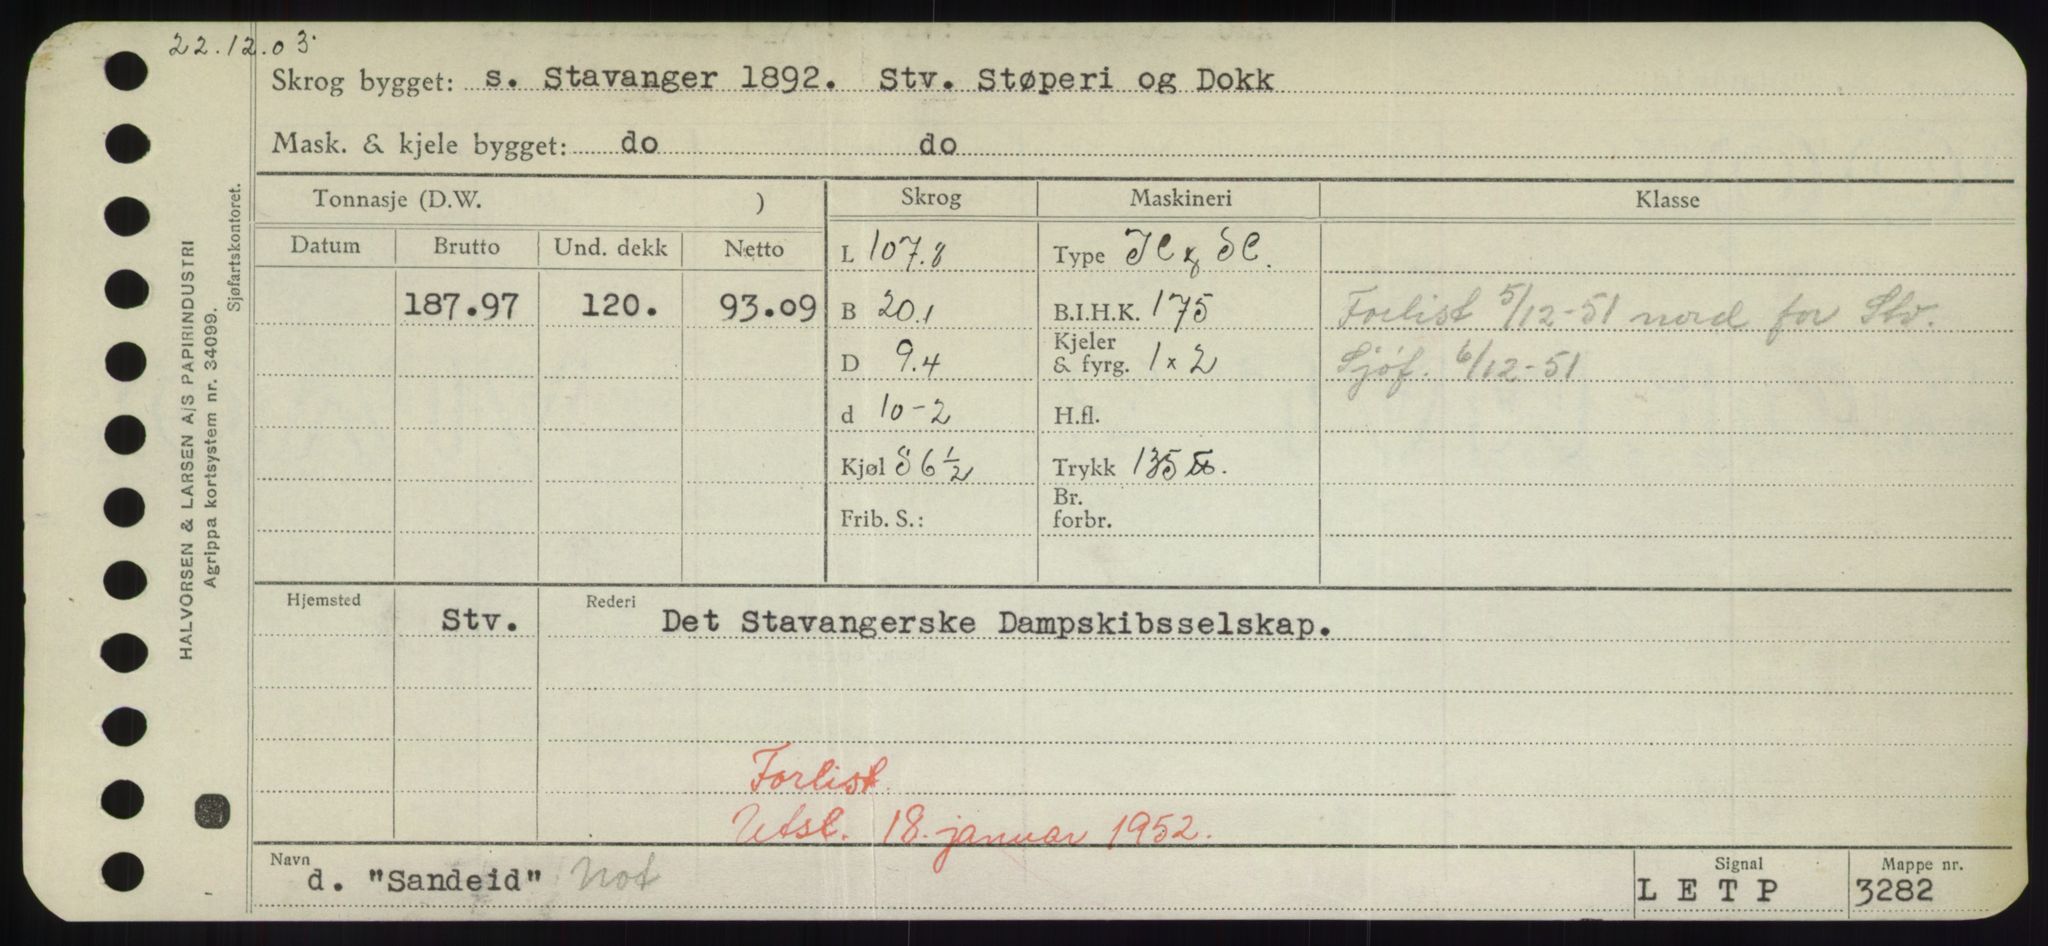 22.12.03
Skrog bygget: s. Stavanger 1892. Stv. Støperi og Dokk
Mask. & kjele bygget: do do
HALVORSEN & LARSEN A/S PAPIRINDUSTRI
Agrippa kortsystem nr. 34099.
Sjøfartskontoret.
Tonnasje (D.W. ) Skrog Maskineri Klasse
Datum Brutto Und. dekk Netto
187.97 120. 93.09
L 107.8
B 20.1
D 9.4
d 10-2
Kjøl S 6 1/2
Frib. S.:
Type
B.I.H.K. 175
Kjeler
& fyrg. 1 x 2
H.fl.
Trykk 135
Br.
forbr.
Forlist 5/12-51 nord for Stv.
Sjöf. 6/12-51
Hjemsted Rederi
Stv. Det Stavangerske Dampskibsselskap.
Forlist.
Utsl. 18. januar 1952.
Navn Signal Mappe nr.
d. "Sandeid" Not L E T P 3282